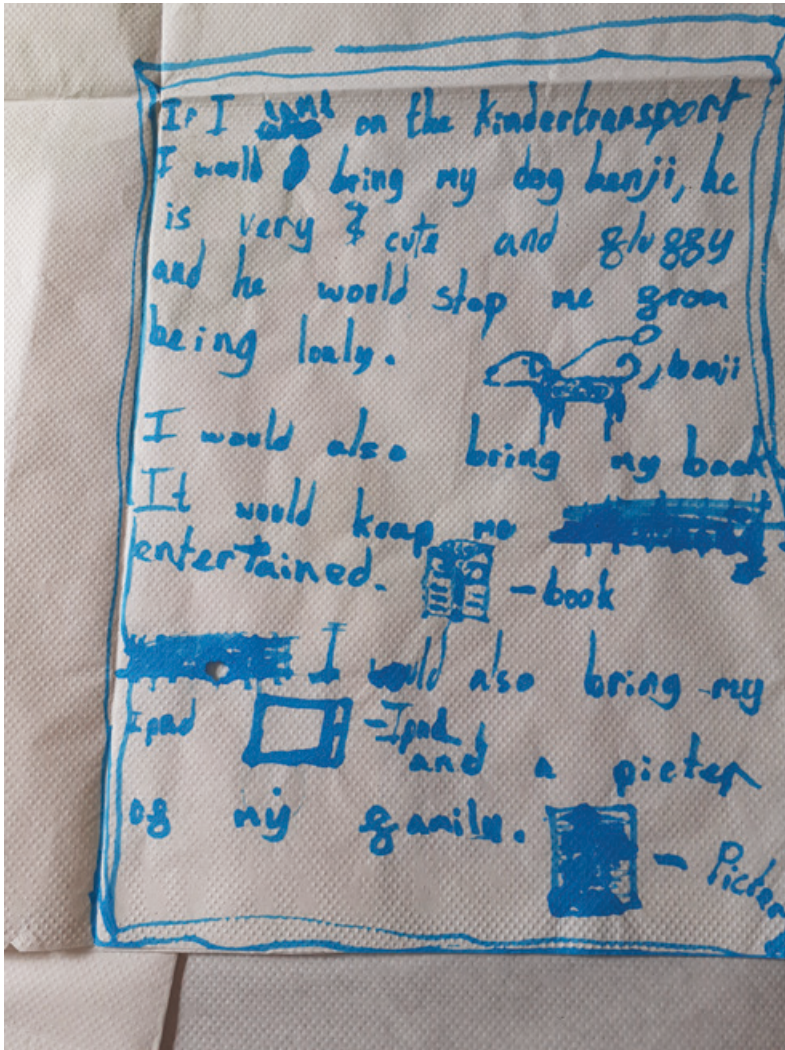 If I came on the Kindertransport
I would bring my dog benji, he
is very cute and fluffy
and he would stop me from
being lonly.
benji
I would also bring my book.
It would keap me
entertained.
-book
I would also bring my
Ipad
-Ipad
and a picter
of my family.
- Picter